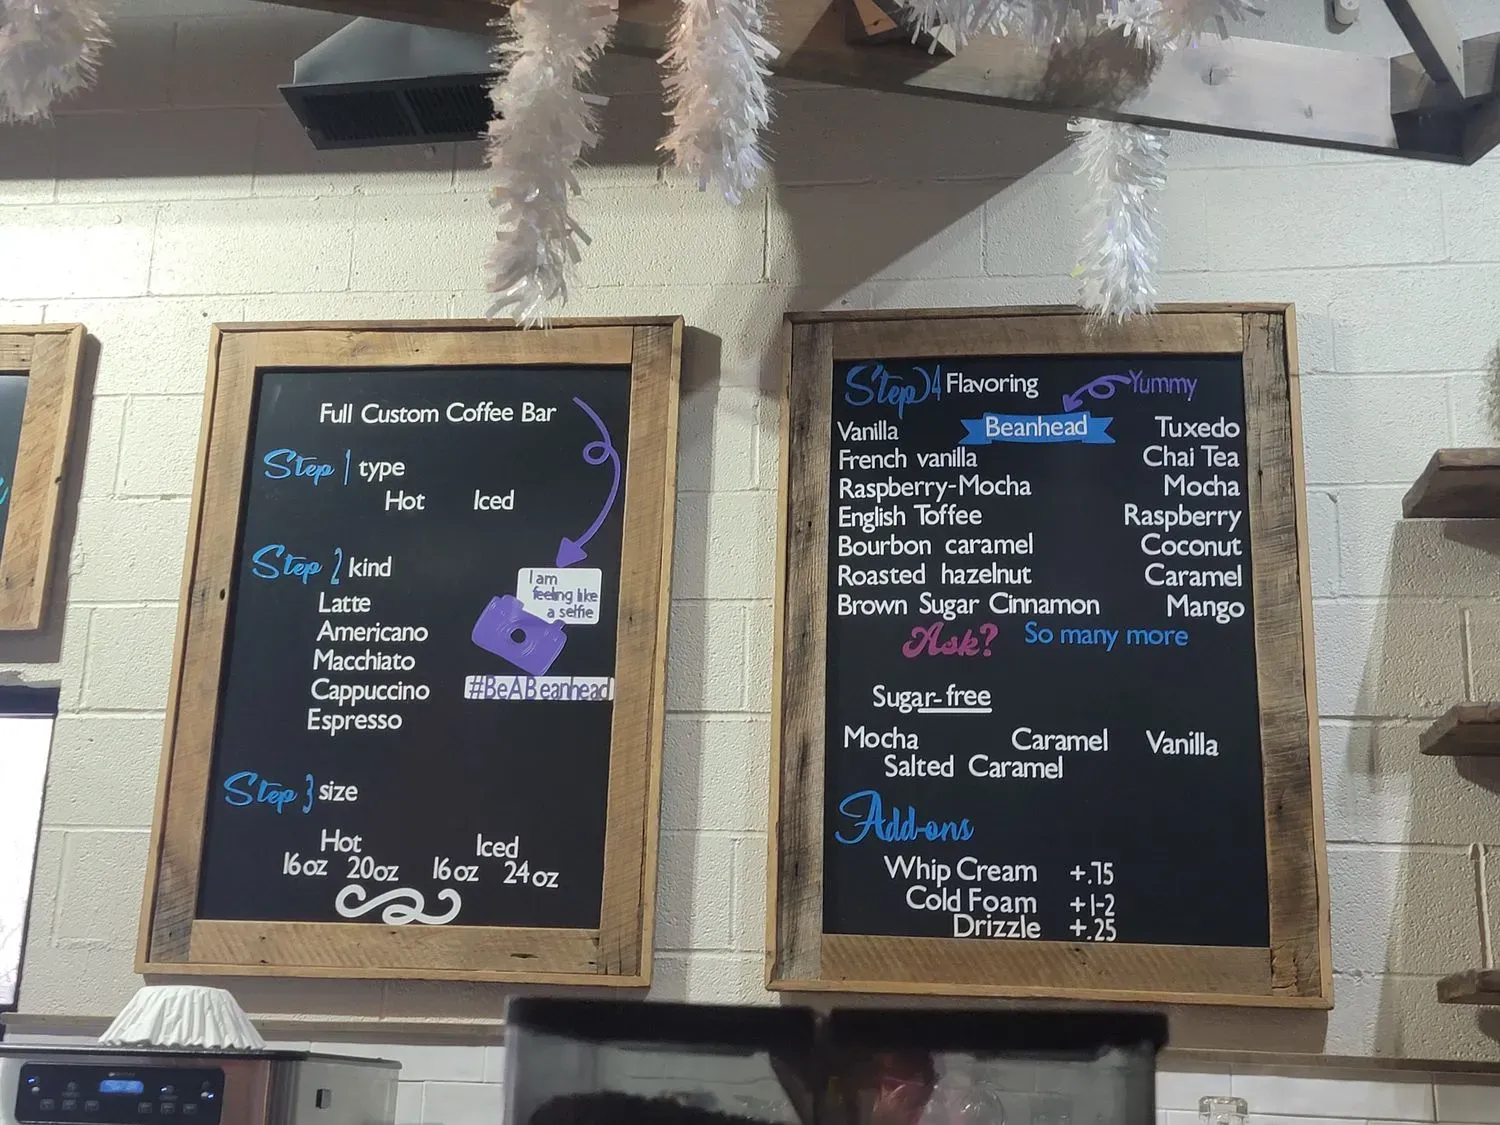 Full Custom Coffee Bar
Step 1 type
Hot Iced
Step 2 kind
Latte
Americano
Macchiato
Cappuccino
Espresso
I am
feeling like
a selfie
#BeABeanhead
Step 3 size
Hot Iced
16oz 20oz 16oz 24oz
Step 4 Flavoring Yummy
Beanhead
Vanilla Tuxedo
French vanilla Chai Tea
Raspberry-Mocha Mocha
English Toffee Raspberry
Bourbon caramel Coconut
Roasted hazelnut Caramel
Brown Sugar Cinnamon Mango
Ask? So many more
Sugar-free
Mocha Caramel Vanilla
Salted Caramel
Add-ons
Whip Cream +.75
Cold Foam +1-2
Drizzle +.25